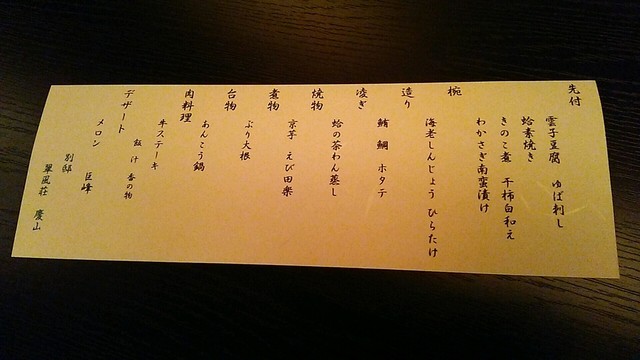 先付
雲子豆腐　ゆば刺し
蛤素焼き
きのこ煮　干柿白和え
わかさぎ南蛮漬け
椀
海老しんじょう　ひらたけ
造り
鮪　鯛　ホタテ
凌ぎ
蛤の茶わん蒸し
焼物
京芋　えび田楽
煮物
ぶり大根
台物
あんこう鍋
肉料理
牛ステーキ
飯　汁　香の物
デザート
メロン　巨峰
別邸
翠風荘　慶山